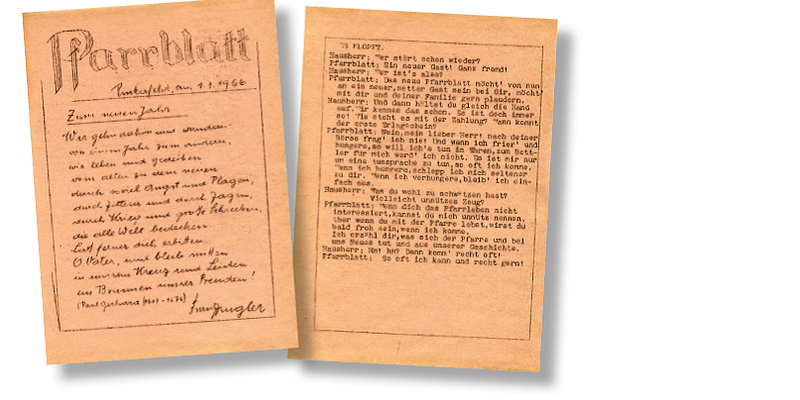 Pfarrblatt
Pinkafeld, am 1.1.1956
Zum neuen Jahr
Wir gehn dahin und wandern
von einem Jahr zum andern,
wir leben und gedeihen
vom alten zu dem neuen
durch soviel Angst und Plagen,
durch Zittern und durch Zagen,
durch Krieg und große Schrecken,
die alle Welt bedecken.
Laß ferner dich erbitten,
O Vater, und bleib mitten
in unserem Kreuz und Leiden
ein Brunnen unsrer Freuden!
(Paul Gerhard (1607-1676)
'S KLOPFT.
Hausherr: Wer stört schon wieder?
Pfarrblatt: Ein neuer Gast! Ganz fremd!
Hausherr: Wer ist's also?
Pfarrblatt: Das neue Pfarrblatt möcht' von nun
an ein neuer, netter Gast sein bei dir, möcht'
mit dir und deiner Familie gern plaudern.
Hausherr: Und dann hältst du gleich die Hand
auf. Wir kennen das schon. Es ist doch immer
so! Wie steht es mit der Zahlung? Wann kommt
der erste Erlagschein?
Pfarrblatt: Nein, mein lieber Herr! Nach deiner
Börse frag' ich nie! Und wenn ich frier' und
hungere, so will ich's tun in Ehren, zum Bett-
ler für mich werd' ich nicht. Es ist mir nur
um eine Aussprache zu tun, so oft ich komme.
Wenn ich hungere, schlepp ich mich seltener
zu dir. Wenn ich verhungere, bleib' ich ein-
fach aus.
Hausherr: Was du wohl zu schwätzen hast?
Vielleicht unnützes Zeug?
Pfarrblatt: Wenn dich das Pfarrleben nicht
interessiert, kannst du mich unnütz nennen.
Aber wenn du mit der Pfarre lebst, wirst du
bald froh sein, wenn ich komme.
Ich erzähl dir, was sich der Pfarre und bei
uns Neues tut und aus unserer Geschichte.
Hausherr: Hm! Hm? Dann komm' recht oft!
Pfarrblatt: So oft ich kann und recht gern!